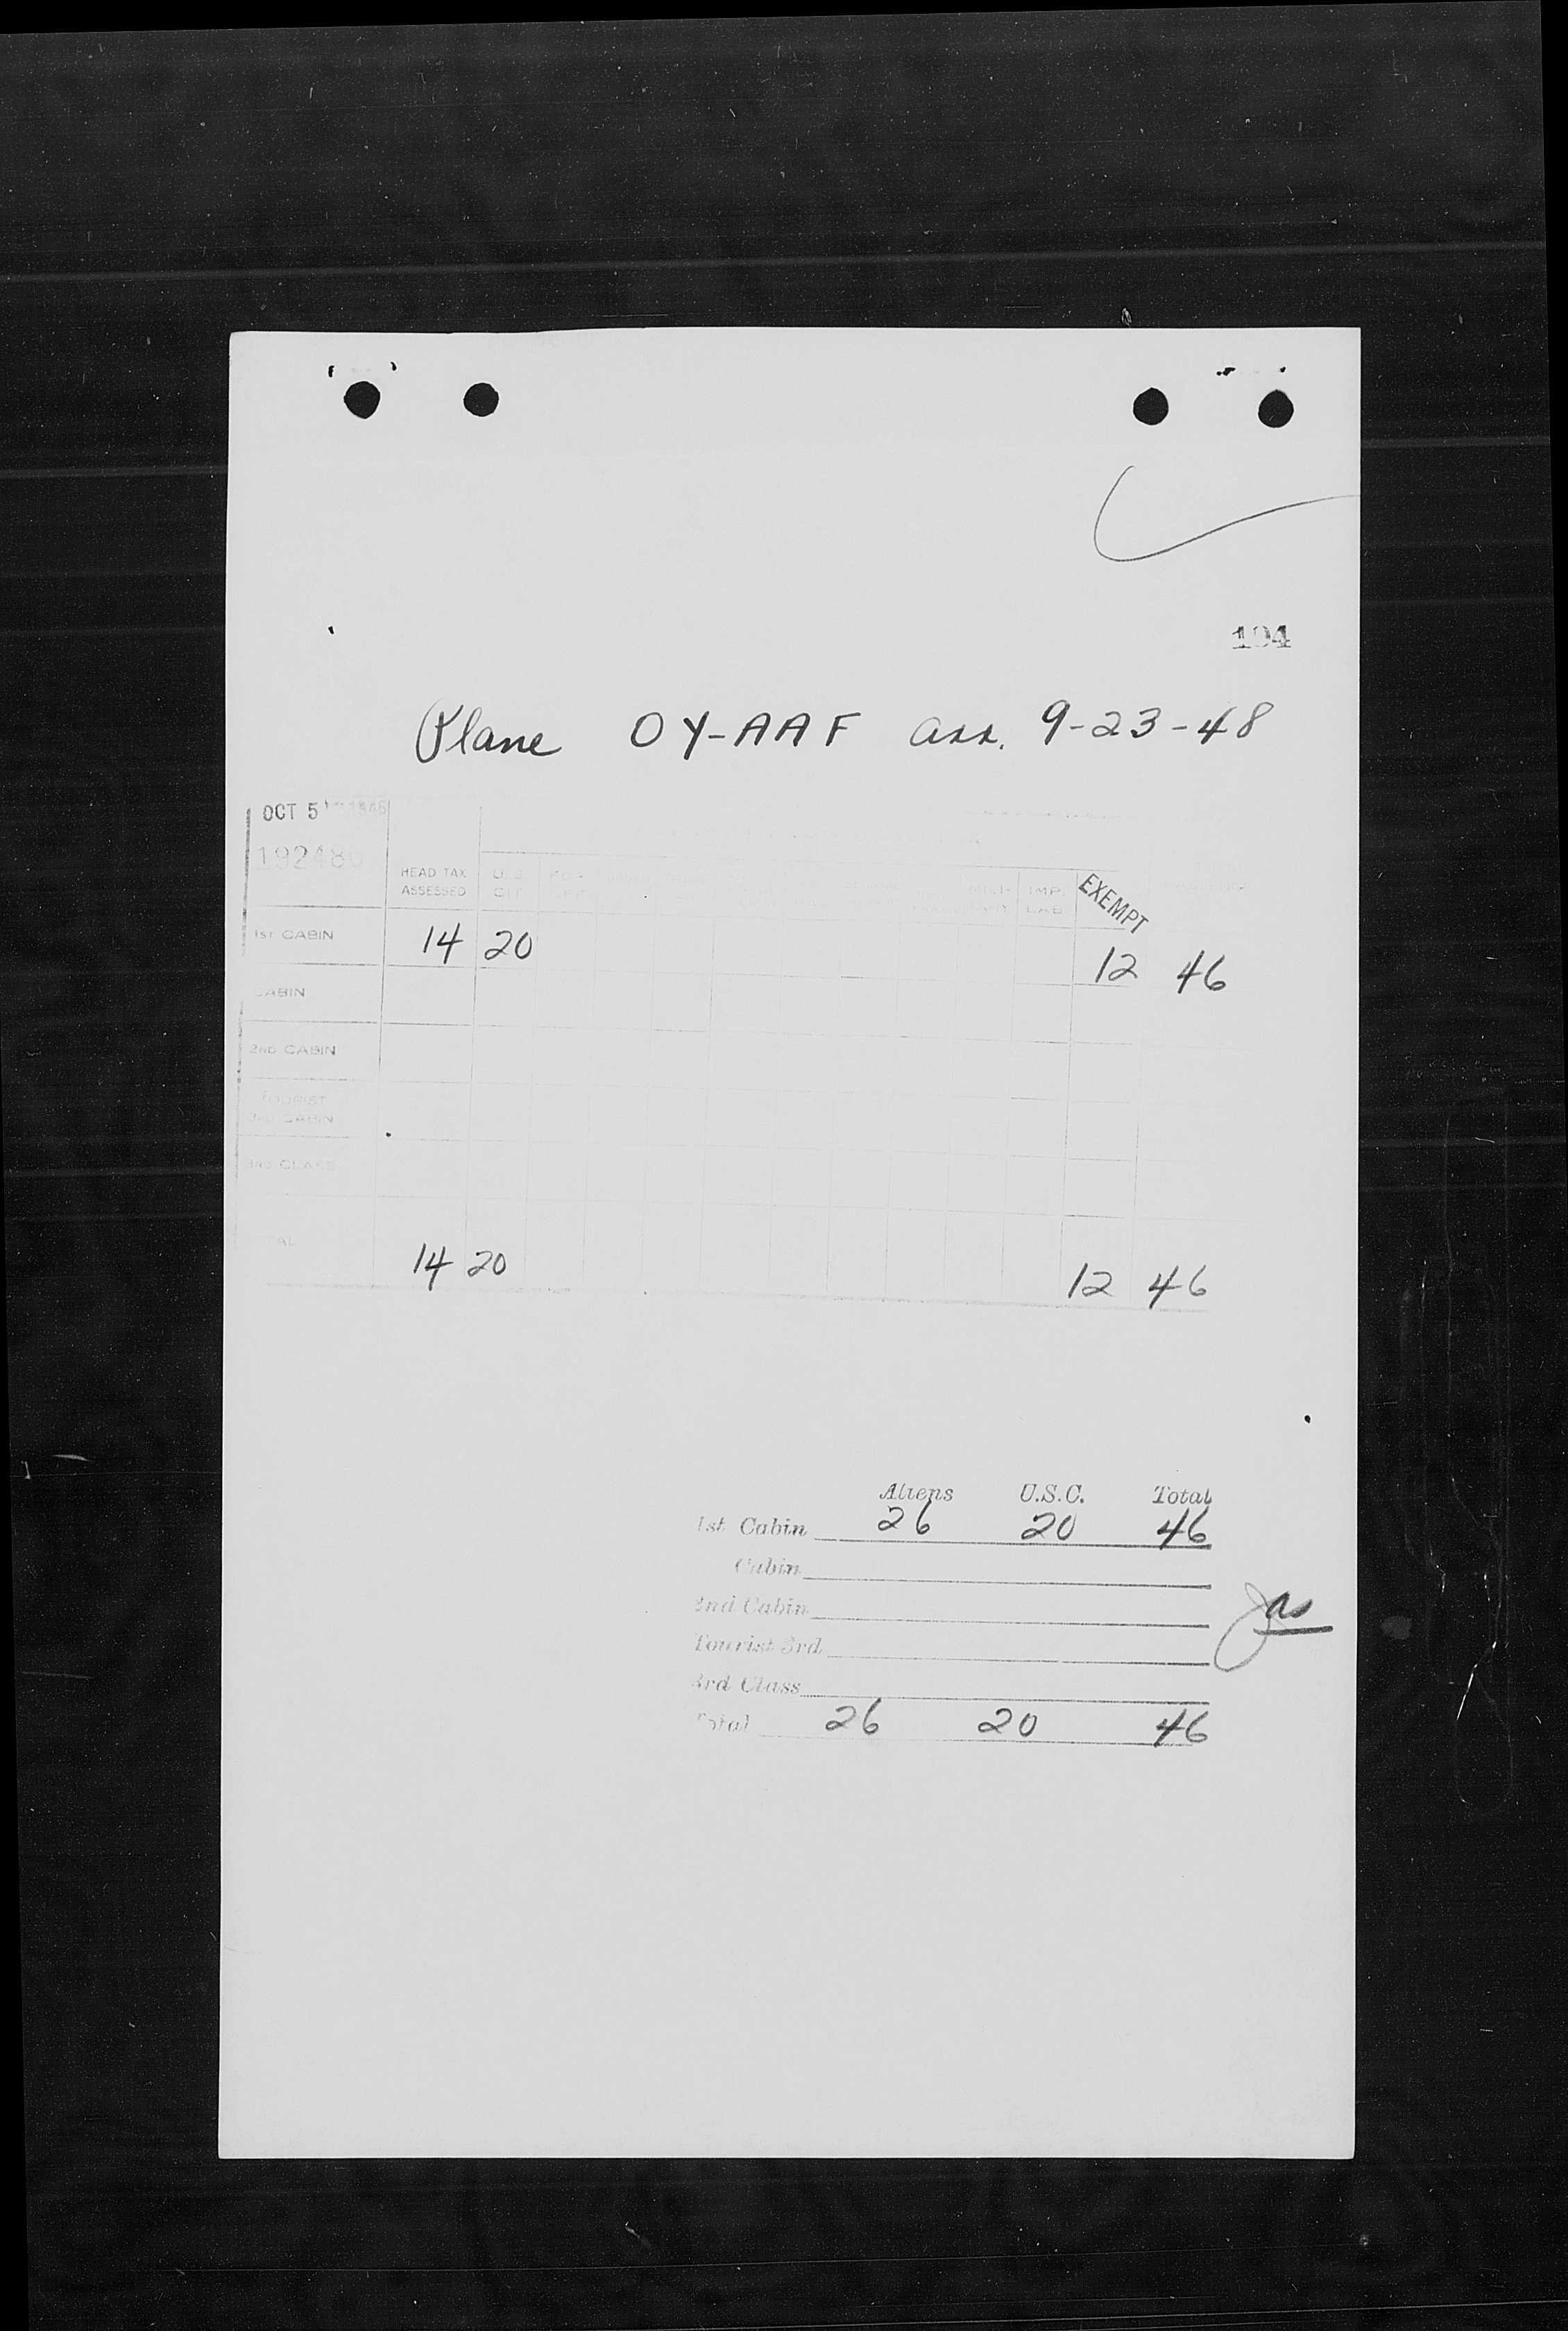 Plane OY-AAF arr. 9-23-48
OCT 5
HEAD TAX ASSESSED U.S. CIT. MILI- IMP. LAB. EXEMPT
1ST CABIN 14 20 12 46
CABIN
2ND CABIN
TOURIST
3RD CABIN
3RD CLASS
14 20 12 46
Aliens U.S.C. Total
1st Cabin 26 20 46
Cabin
2nd Cabin
Tourist 3rd
3rd Class
Total 26 20 46